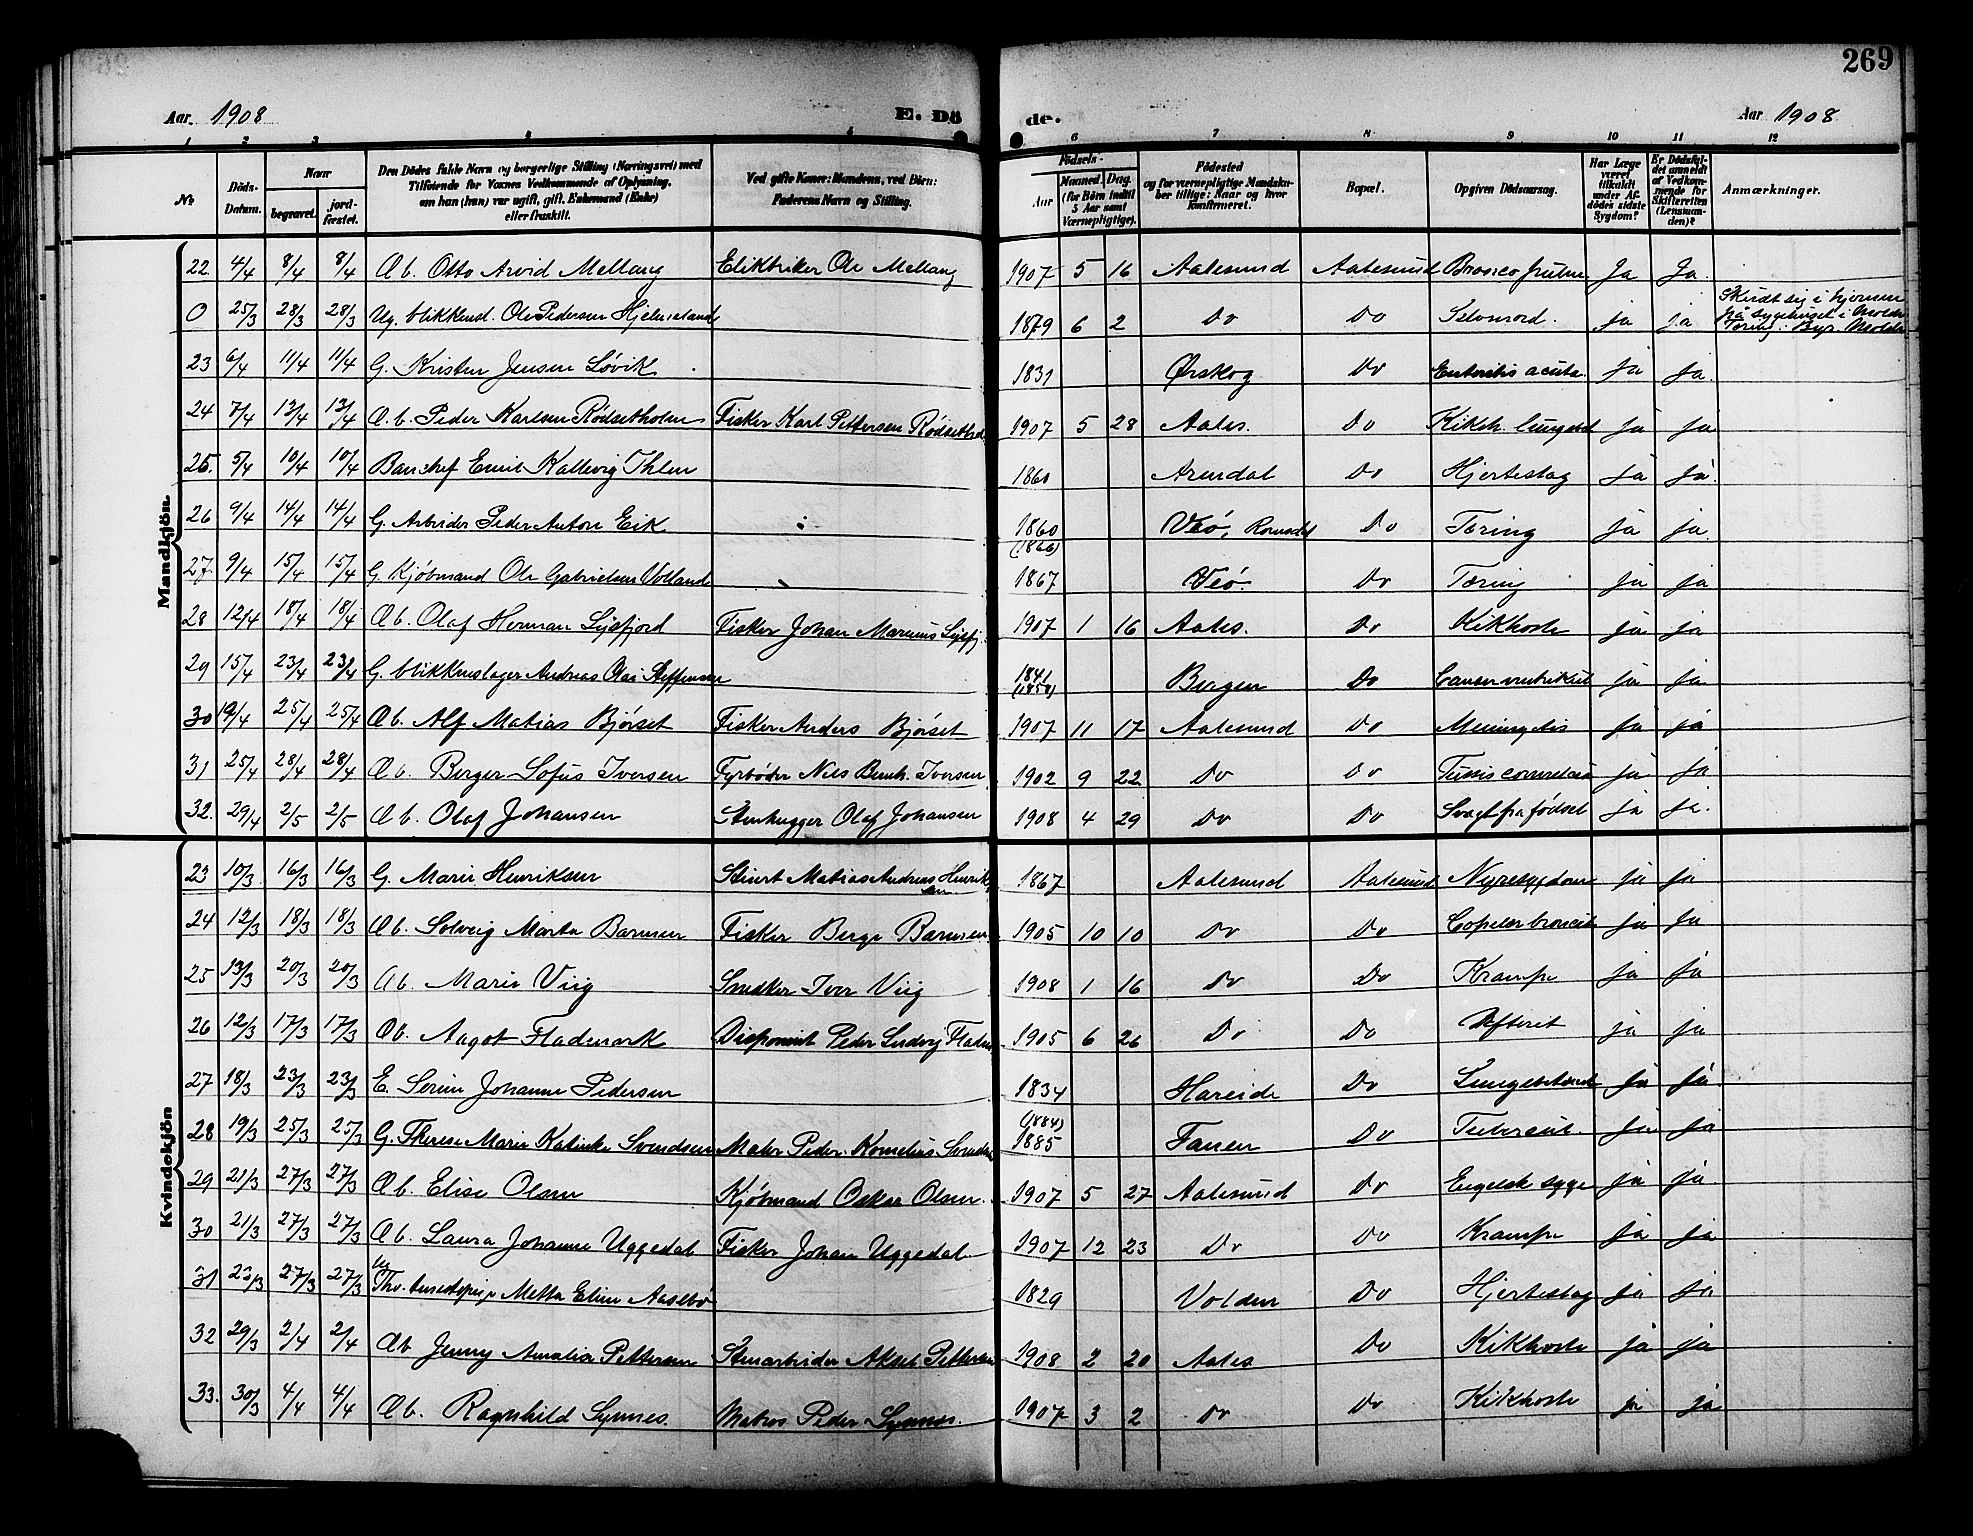 269
Aar 1908 E. Dö de. Aar 1908
1 2 3 5 6 7 8 9 10 11 12
No Döds-Datum. Naar begravet. jordfæstet. Den Dödes fulde Navn og borgerlige Stilling (Næringsvei) med Tilføiende for Voxnes Vedkommende af Oplysning, om han (hun) var ugift, gift, Enkemand (Enke) eller fraskilt. Ved gifte Koner: Mandens, ved Börn: Faderens Navn og Stilling. Födsels- Aar Maaned. Dag. (for Börn indtil 5 Aar samt Værnepligtige). Födested og for værnepligtige Mandskaber tillige: Naar og hvor konfirmeret. Bopæl. Opgiven Dödsaarsag. Har Læge været tilkaldt under Afdödes sidste Sygdom? Er Dödsfaldet anmeldt af Vedkommende for Skifteretten (Lensmanden)? Anmærkninger.
Mandkjön
22 4/4 8/4 8/4 Æb. Otto Arvid Mellang Elektriker Ole Mellang 1907 5 16 Aalesund Aalesund Ja Ja.
0 25/3 28/3 28/3 Ug. blikkensl. Ole Pedersen Hjelmeland 1879 6 2 Do Do Selvmord. ja ja Skudt sig i hjernen paa Sygehuset i Molde
23 6/4 11/4 11/4 G. Kristen Jensen Løvik 1831 Ørskog Do Enteritis acuta ja ja.
24 7/4 13/4 13/4 Æ.b. Peder Karlsen Rødsetholm Fisker Karl Pettersen Rødseth 1907 5 28 Aales. Do Kikh. lungebet ja ja
25. 5/4 10/4 10/4 Emil Kallevig Ihlen 1860 Arendal Do Hjerteslag ja ja.
26 9/4 14/4 14/4 G. Arbeider Peder Anton Eik 1860 (1866) Veö, Romsdal Do Tæring ja ja
27. 9/4 15/4 15/4 G. Kjøbmand Ole Gabrielsen Volland 1867 Veö. Do Tæring ja ja
28 12/4 18/4 18/4 Æb. Olaf Herman Fisker Johan Marinus 1907 1 16 Aales. Do Kikhoste ja ja
29 15/4 23/4 23/4 G. blikkenslager Andreas Olai Steffensen 1841 Bergen Do Cancer ventrikuli ja ja
30 19/4 25/4 25/4 Æb. Alf Matias Bjørset Fisker Anders Bjørset 1907 11 17 Aalesund Do Meningitis ja ja
31 25/4 28/4 28/4 Æb. Berger Sofus Iversen Fyrbøder Nils Bernh. Iversen 1902 9 22 Do Do Tussis convulsiva ja ja
32. 29/4 2/5 2/5 Æb. Olaf Johansen Stenhugger Olaf Johansen 1908 4 29 Do Do Svagt fra fødsel ja ja.
Kvindekjön
23 10/3 16/3 16/3 G. Marie Henriksen Stuert Matias Andreas Henriksen 1867 Aalesund Aalesund Nyresygdom ja ja
24 12/3 18/3 18/3 Æb. Solveig Marta Barmen Fisker Berge Barmen 1905 10 10 Do Do ja ja
25 13/3 20/3 20/3 Æb Marie Viig Snedker Iver Viig 1908 1 16 Do Do Krampe ja ja
26 12/3 17/3 17/3 Æb. Aagot Flademark Disponent Peder Ludvig Fladem 1905 6 26 Do Do Difterit ja ja
27 18/3 23/3 23/3 E. Serine Johanne Pedersen 1834 Hareide Do Lungebetænd ja ja
28 19/3 25/3 25/3 G. Therese Marie Katinka Svendsen Maler Peder Kornelius Svendsen (1884) 1885 Fanen Do Tubercul. ja ja
29 21/3 27/3 27/3 Æb. Elise Olsen Kjøbmand Oskar Olsen. 1907 5 27 Aalesund Do Engelsk syge ja ja.
30 21/3 27/3 27/3 Æb. Laura Johanne Uggedal Fisker Johan Uggedal. 1907 12 23 Do Do Krampe ja ja
31 23/3 27/3 27/3 Ug Metta Eline Aasebø 1829 Volden Do Hjerteslag ja ja
32 29/3 2/4 2/4 Æb Jenny Amalia Pettersen Stenarbeider Aksel Pettersen 1908 2 20 Aales Do Kikhoste ja ja
33. 30/3 4/4 4/4 Æb. Ragnhild Synnes. Matros Peder Synnes. 1907 3 2 Do Do Kikhoste ja ja